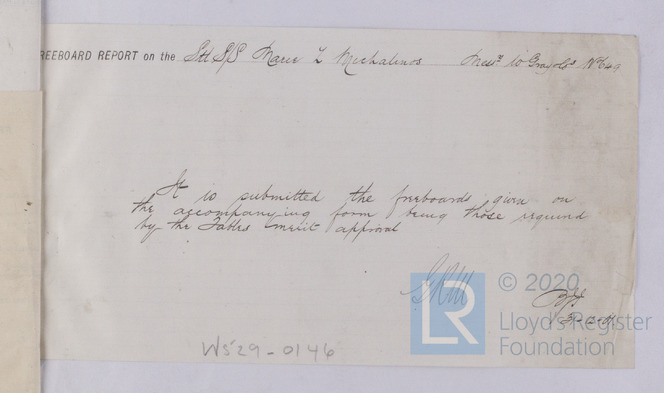 REEBOARD REPORT on the Stl S/S Marie L Michalinos Messrs W Gray & Co's No 649
It is submitted the freeboards given on
the accompanying form being those required
by the Tables merit approval
LR
© 2020
Lloyd's Register
Foundation
W529-0146